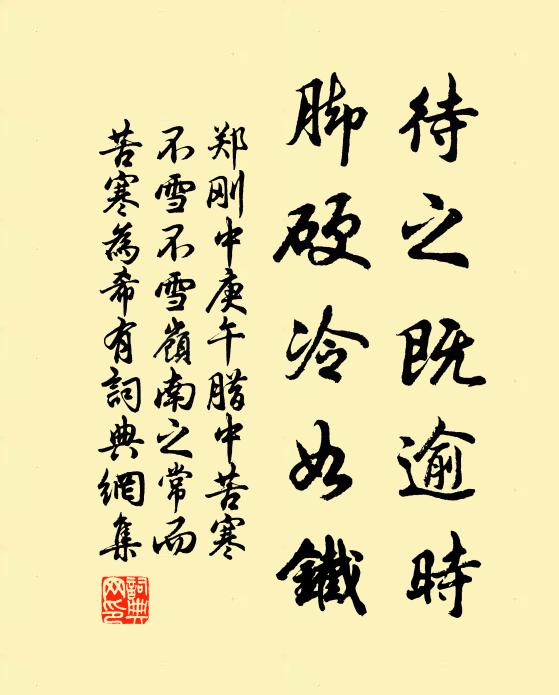 待之既逾时
脚硬冷如鐵
郑刚中庚午腊中苦寒
不雪不雪嶺南之常而
苦寒為希有詞典網集
詞典
网印